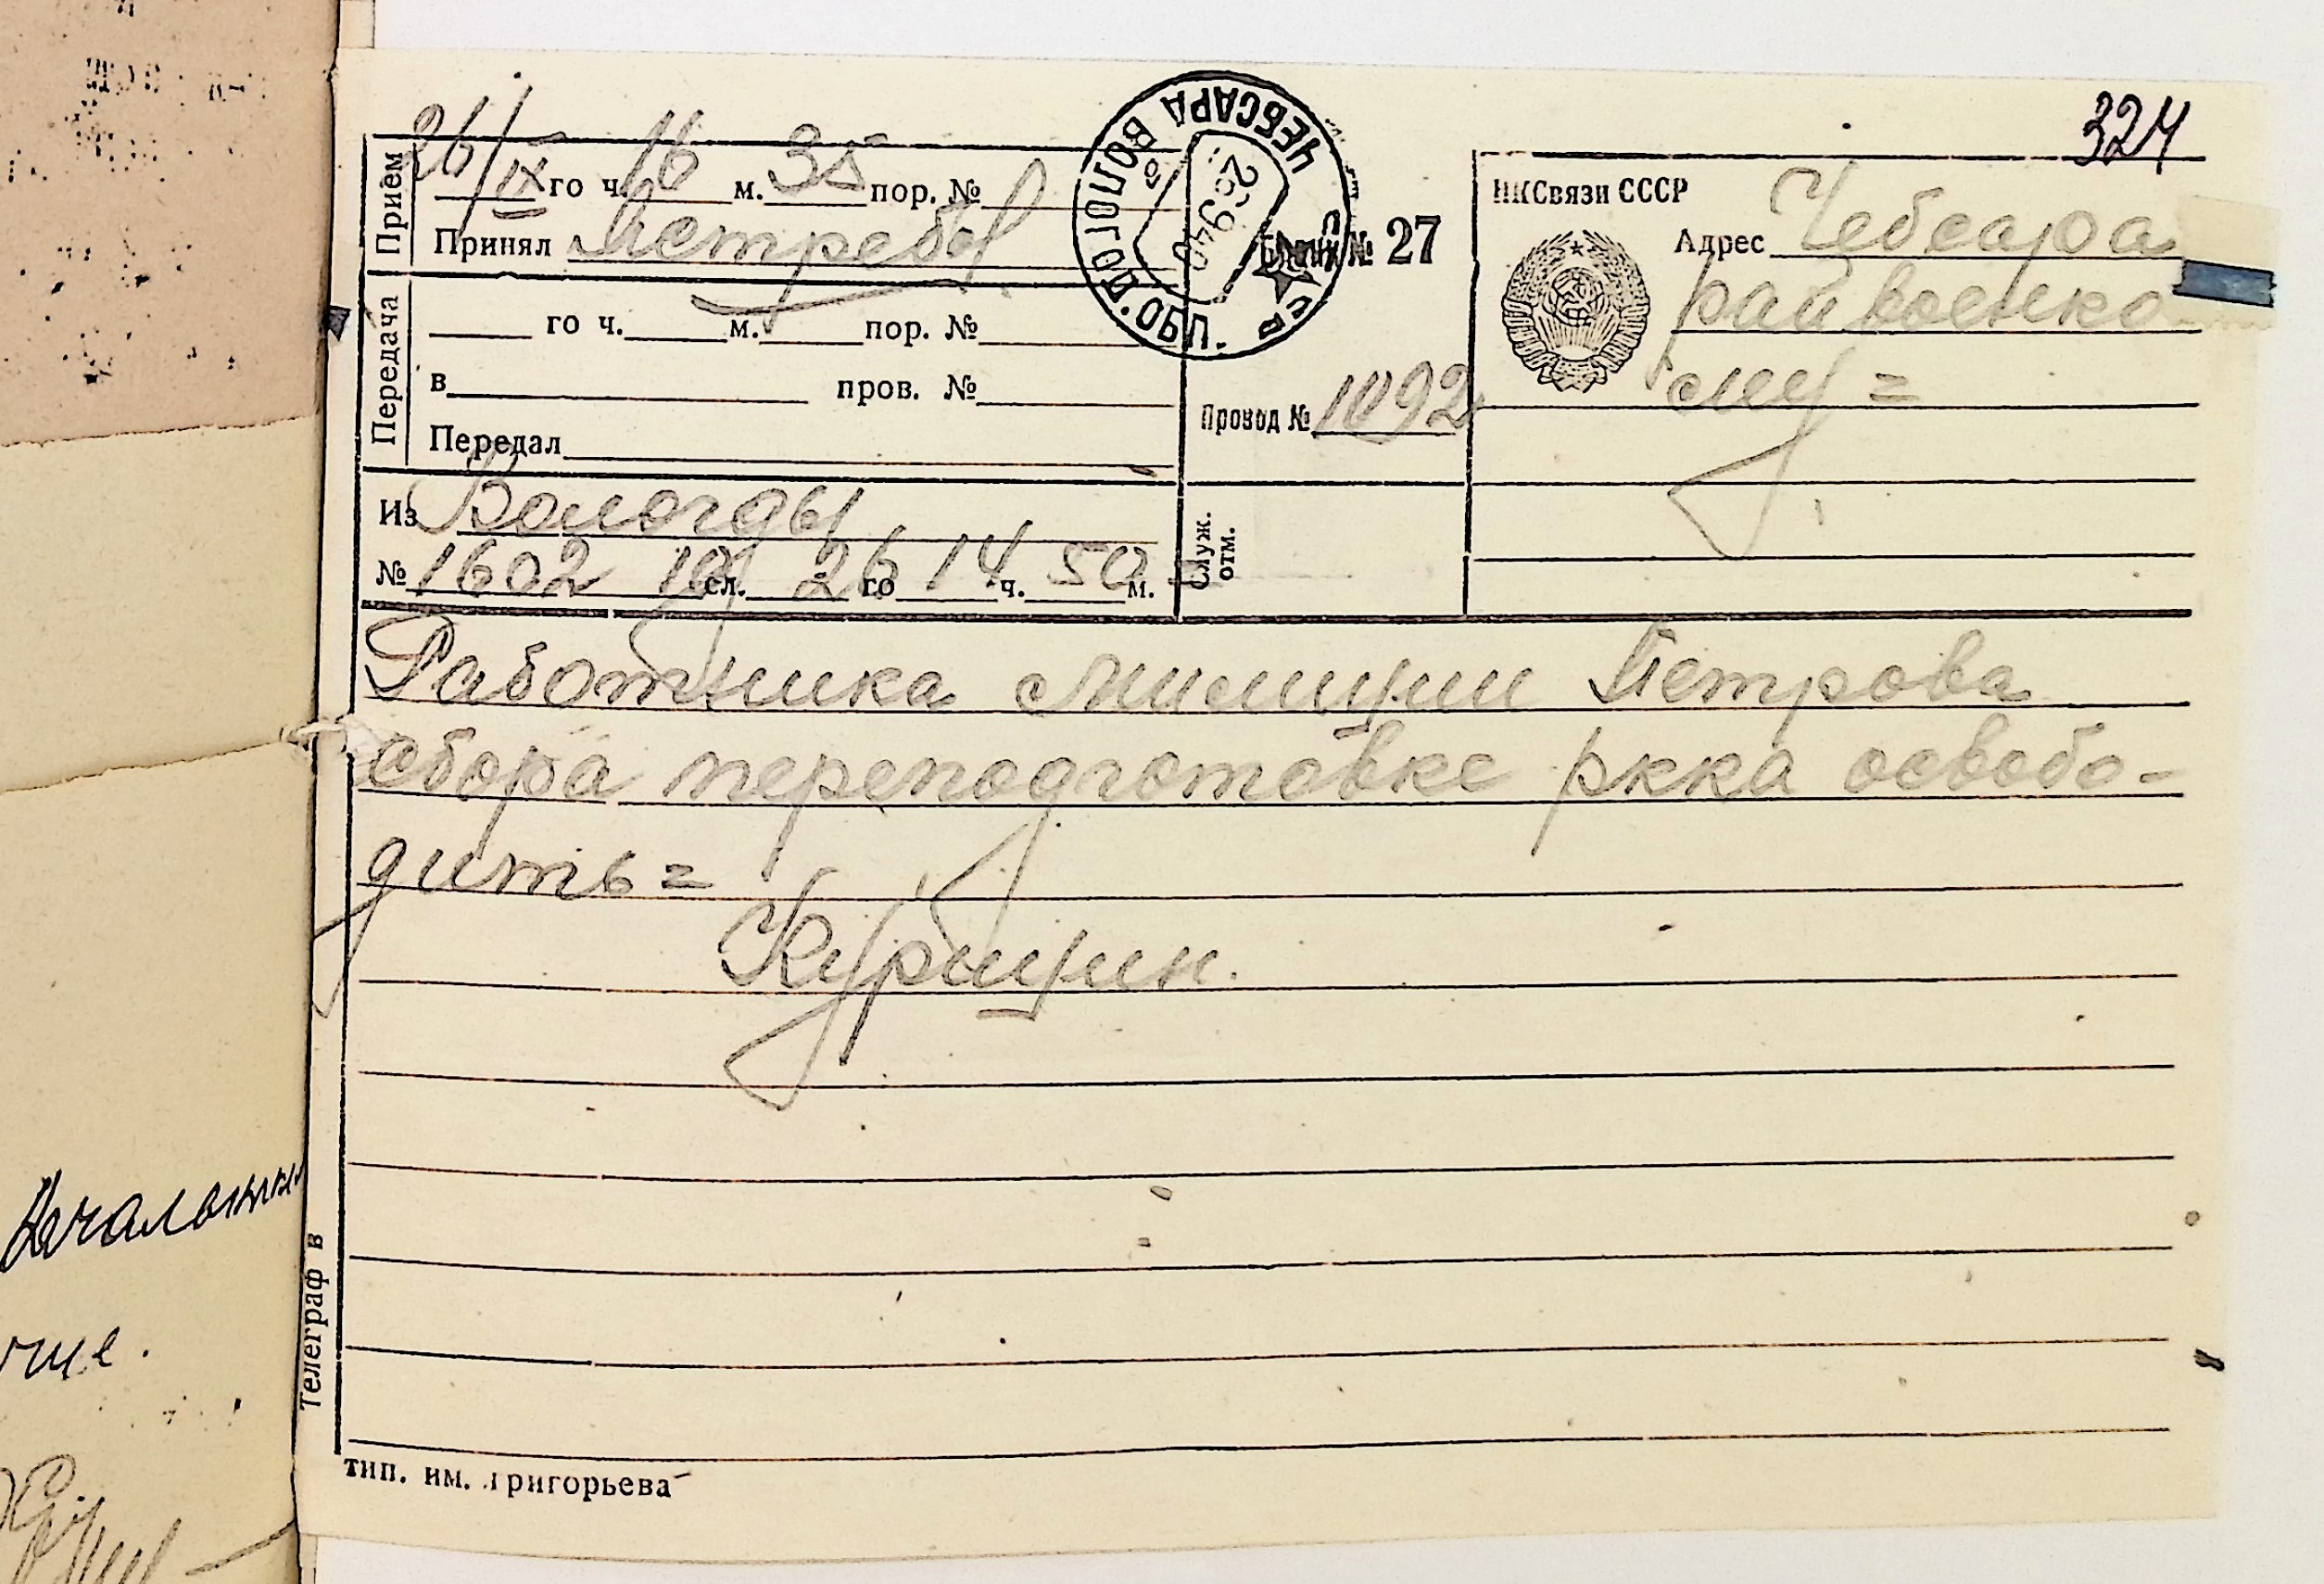 324
Прием
26/IX го ч. 16 м. 35 пор. №
Принял Ястребов
Передача
го ч. м. пор. №
в пров. №
Передал
Из Вологды
№ 1602 19 сл. 26 го 14 ч. 50 м.
ЧЕБСАРА ВОЛОГОД. ОБЛ.
26 9 40
Бланк № 27
Провод № 1092
Служ. отм.
НКСвязи СССР
Адрес Чебсара
райвоенко
му =
Работника милиции Петрова
сбора переподготовке ркка освобо-
дить =
Курицин.
Телеграф в
тип. им. Григорьева